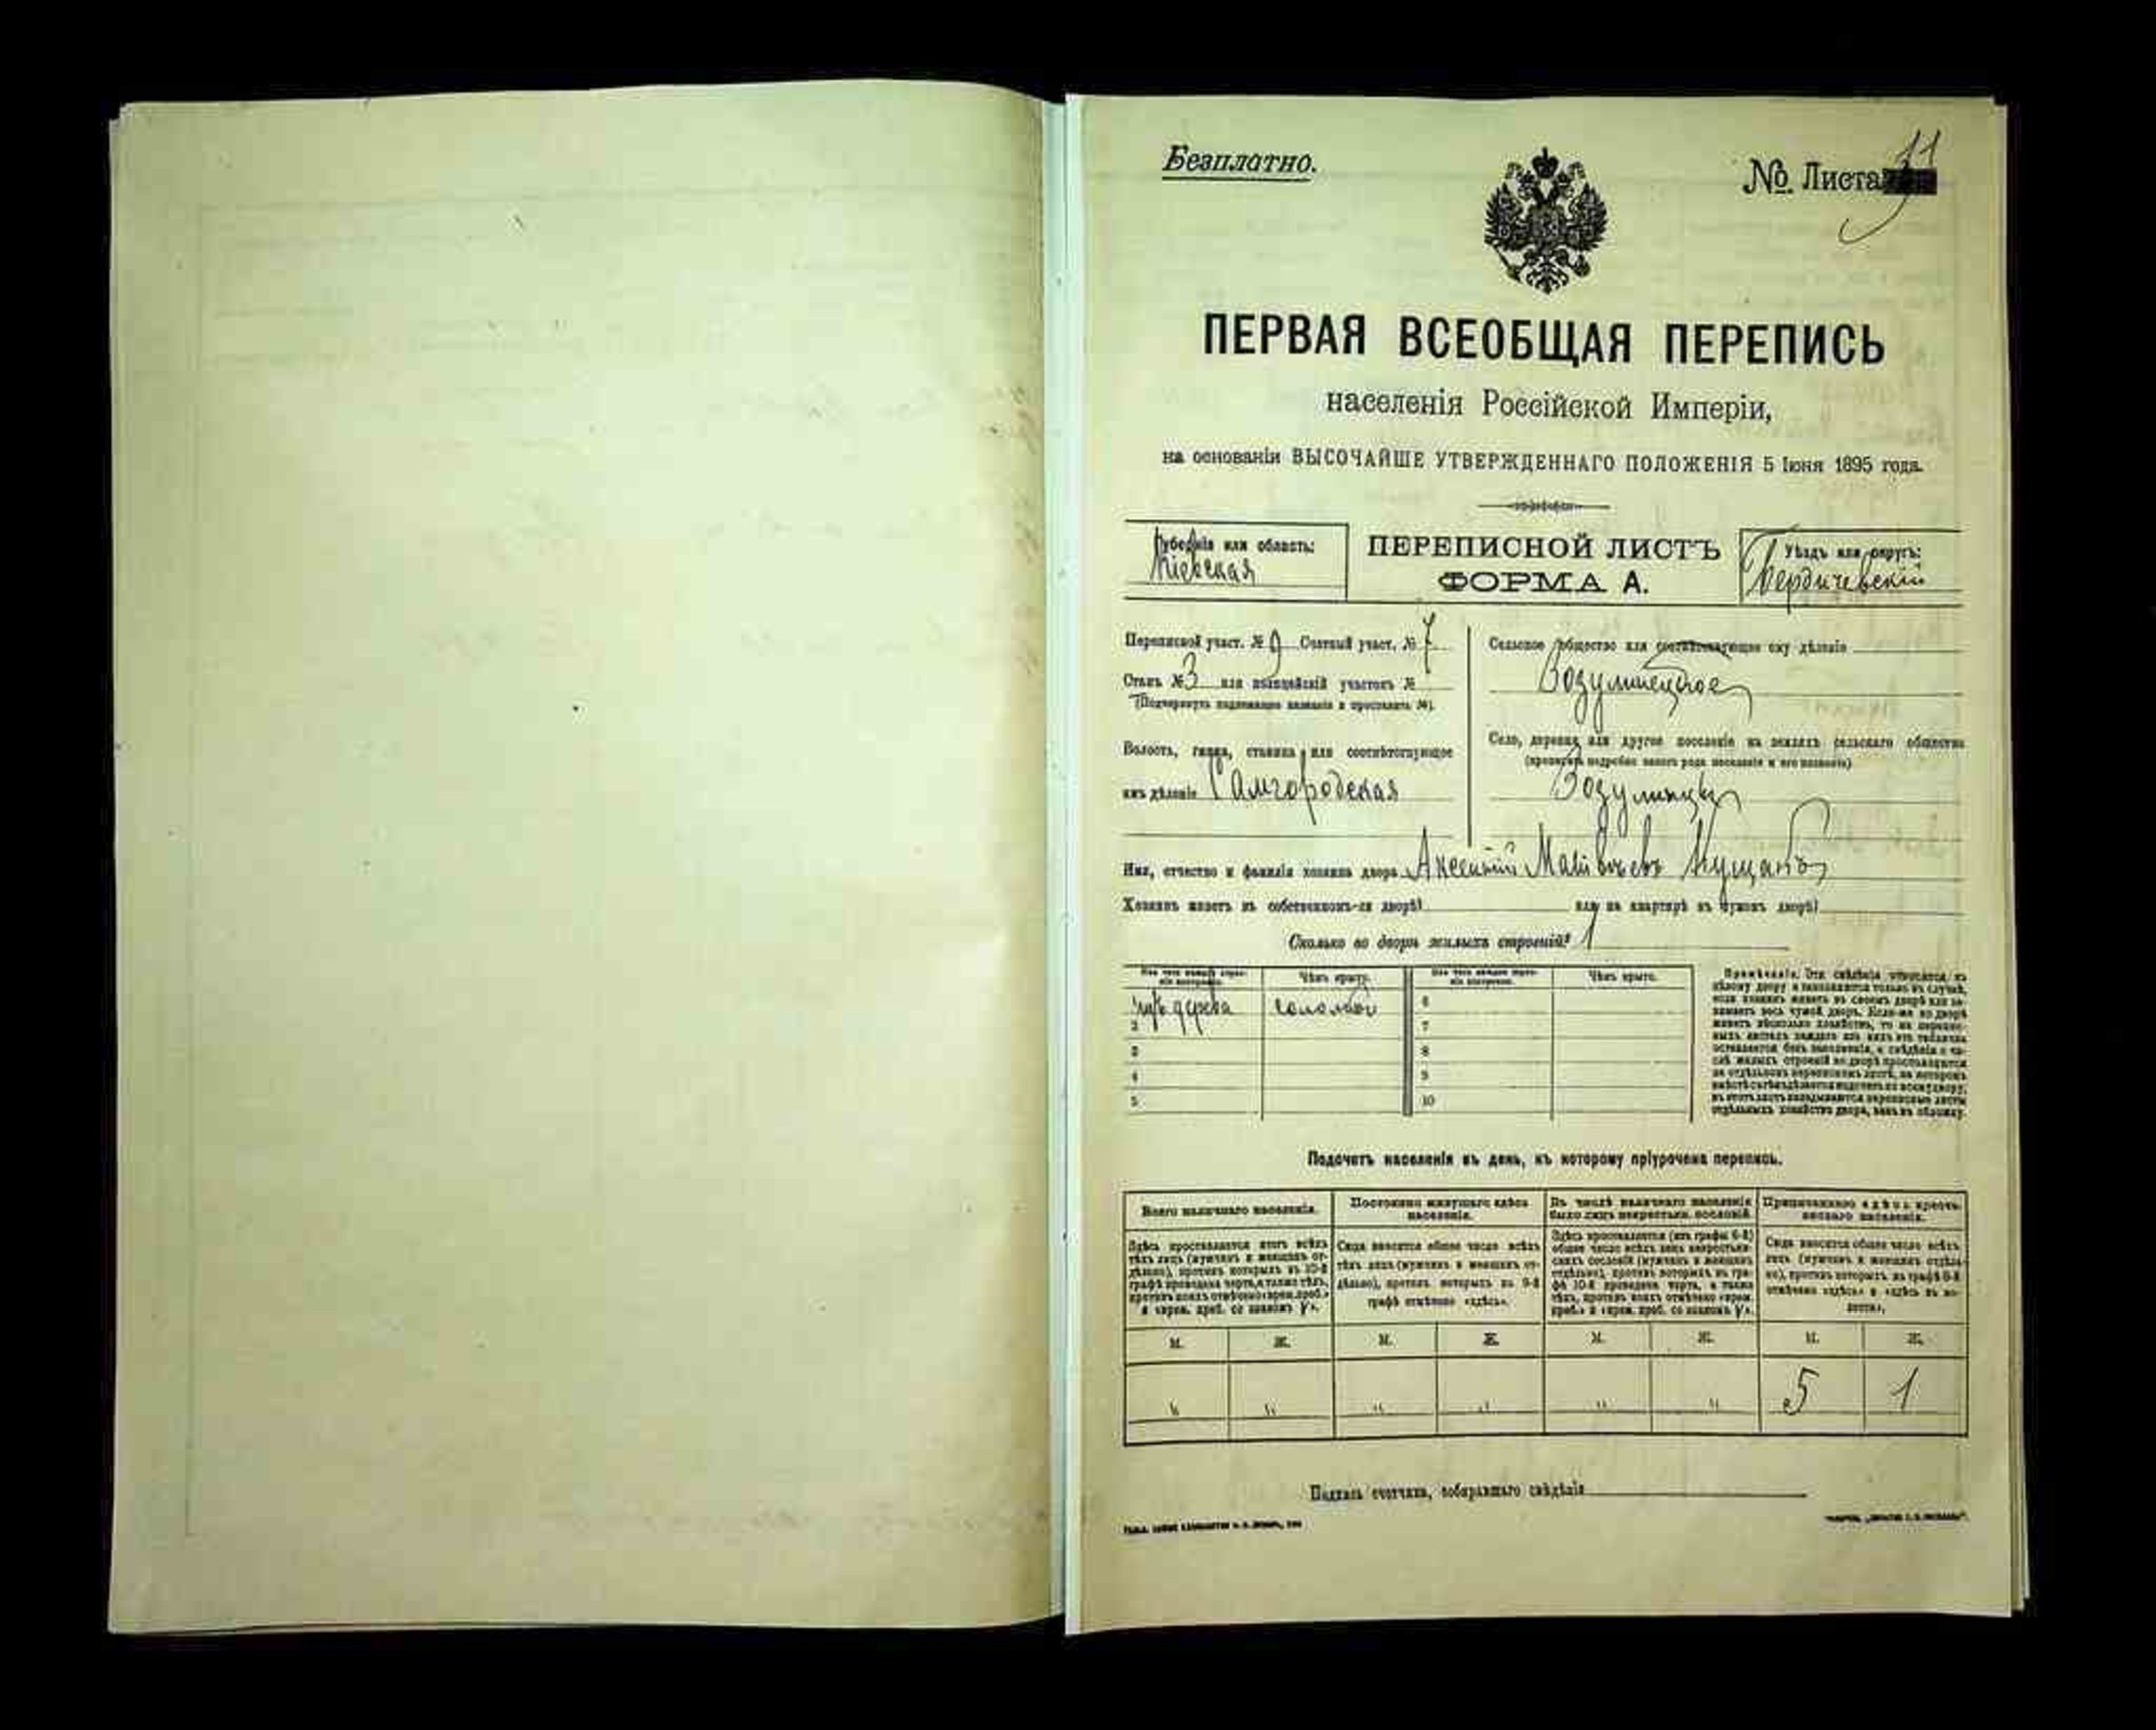 Безплатно.
№ Листа 11
ПЕРВАЯ ВСЕОБЩАЯ ПЕРЕПИСЬ
населенія Россійской Имперіи,
на основаніи ВЫСОЧАЙШЕ УТВЕРЖДЕННАГО ПОЛОЖЕНІЯ 5 Іюня 1895 года.
Губернія или область:
Кіевская
ПЕРЕПИСНОЙ ЛИСТЪ
ФОРМА А.
Уѣздъ или округъ:
Бердичевскій
Переписной участ. № 9 Счетный участ. № 7
Станъ № 3 или полицейскій участокъ №
(Подчеркнуть надлежащее названіе и проставить №).
Волость, гмина, станица или соотвѣтствующее
имъ дѣленіе Самгородская
Сельское общество или соотвѣтствующее ему дѣленіе
Зозулинецкое
Село, деревня или другое поселеніе на земляхъ сельскаго общества
(прописать подробно какого рода поселеніе и его названіе)
Зозулинцы
Имя, отчество и фамилія хозяина двора Аксентій Матвѣевъ
Хозяинъ живетъ въ собственномъ-ли дворѣ? или на квартирѣ въ чужомъ дворѣ?
Сколько во дворѣ жилыхъ строеній? 1
Изъ чего каждое строеніе построено.
Чѣмъ крыто.
Изъ чего каждое строеніе построено.
Чѣмъ крыто.
изъ дерева соломой 6
2 7
3 8
4 9
5 10
Примѣчаніе. Эти свѣдѣнія относятся къ
цѣлому двору и заполняются только въ случаѣ,
если хозяинъ живетъ въ своемъ дворѣ или за-
нимаетъ весь чужой дворъ. Если-же во дворѣ
живетъ нѣсколько хозяйствъ, то на перепис-
ныхъ листахъ каждаго изъ нихъ эта табличка
оставляется безъ заполненія, а свѣдѣнія о чи-
слѣ жилыхъ строеній во дворѣ проставляются
на отдѣльномъ переписномъ листѣ, на которомъ
Подсчетъ населенія въ день, къ которому пріурочена перепись.
Всего наличнаго населенія.
Постоянно живущаго здѣсь
населенія.
Въ числѣ наличнаго населенія
было лицъ некрестьян. сословій.
Приписаннаго здѣсь кресть-
янскаго населенія.
Здѣсь проставляется итогъ всѣхъ
тѣхъ лицъ (мужчинъ и женщинъ от-
дѣльно), противъ которыхъ въ 10-й
графѣ проведена черта, а также тѣхъ,
противъ коихъ отмѣчено «врем. преб.»
и «врем. преб. со знакомъ V».
Сюда вносится общее число всѣхъ
тѣхъ лицъ (мужчинъ и женщинъ от-
дѣльно), противъ которыхъ въ 9-й
графѣ отмѣчено «здѣсь».
Здѣсь проставляется (изъ графы 6-й)
общее число всѣхъ лицъ некрестьян-
скихъ сословій (мужчинъ и женщинъ
отдѣльно), противъ которыхъ въ гра-
фѣ 10-й проведена черта, а также
тѣхъ, противъ коихъ отмѣчено «врем.
преб.» и «врем. преб. со знакомъ V».
Сюда вносится общее число всѣхъ
лицъ (мужчинъ и женщинъ отдѣль-
но), противъ которыхъ въ графѣ 8-й
отмѣчено «здѣсь» и «здѣсь въ во-
лости».
М. Ж. М. Ж. М. Ж. М. Ж.
" " " " " " 5 1
Подпись счетчика, собиравшаго свѣдѣнія